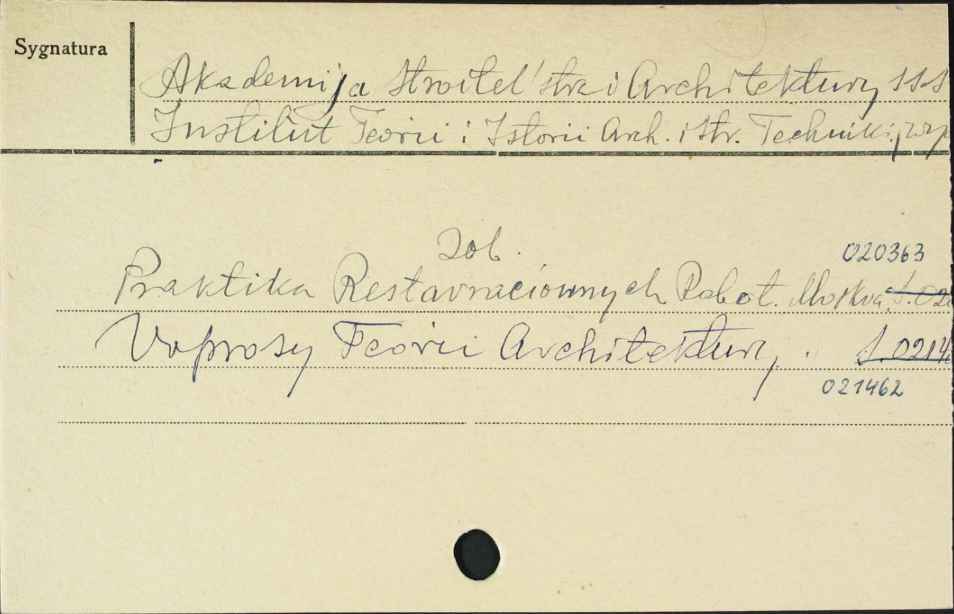 Sygnatura
Akademija Stroitel'stva i Architektury SSS
Institut Teorii i Istorii Arch. i Str. Techniki
Zob.
020363
Praktika Restavraciownnych Rabot. Moskva, S. 02
Voprosy Teorii Architektury. S. 0214
021462